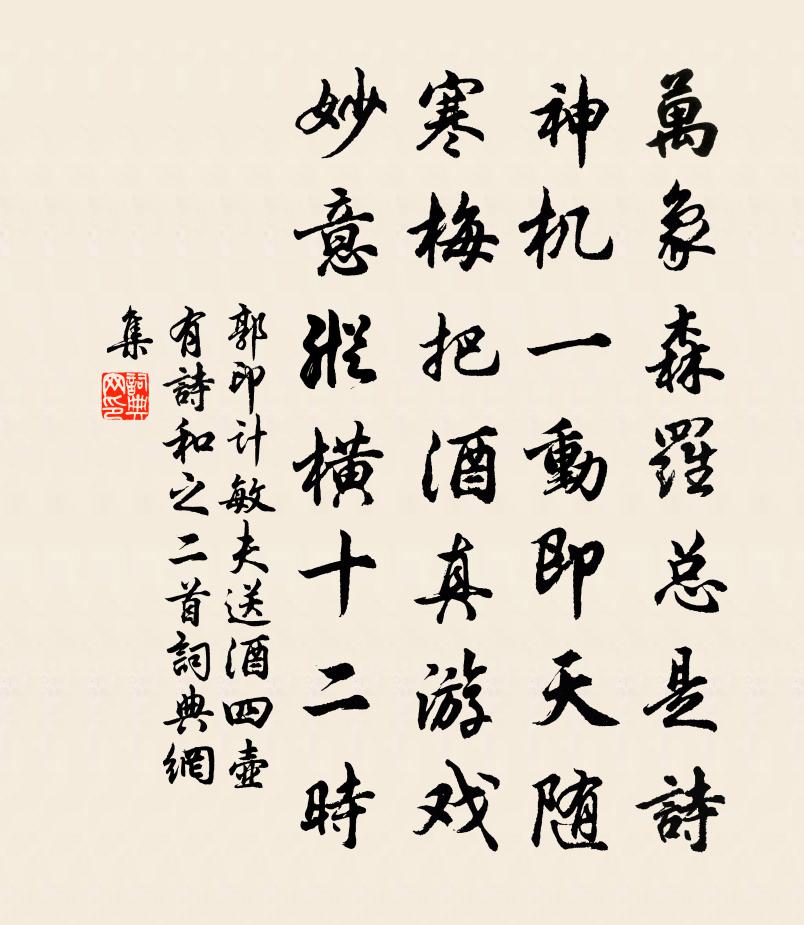 萬象森羅总是詩
神机一動即天随
寒梅把酒真游戏
妙意縱橫十二時
郭印计敏夫送酒四壺
有詩和之二首詞典網
集
詞典网印